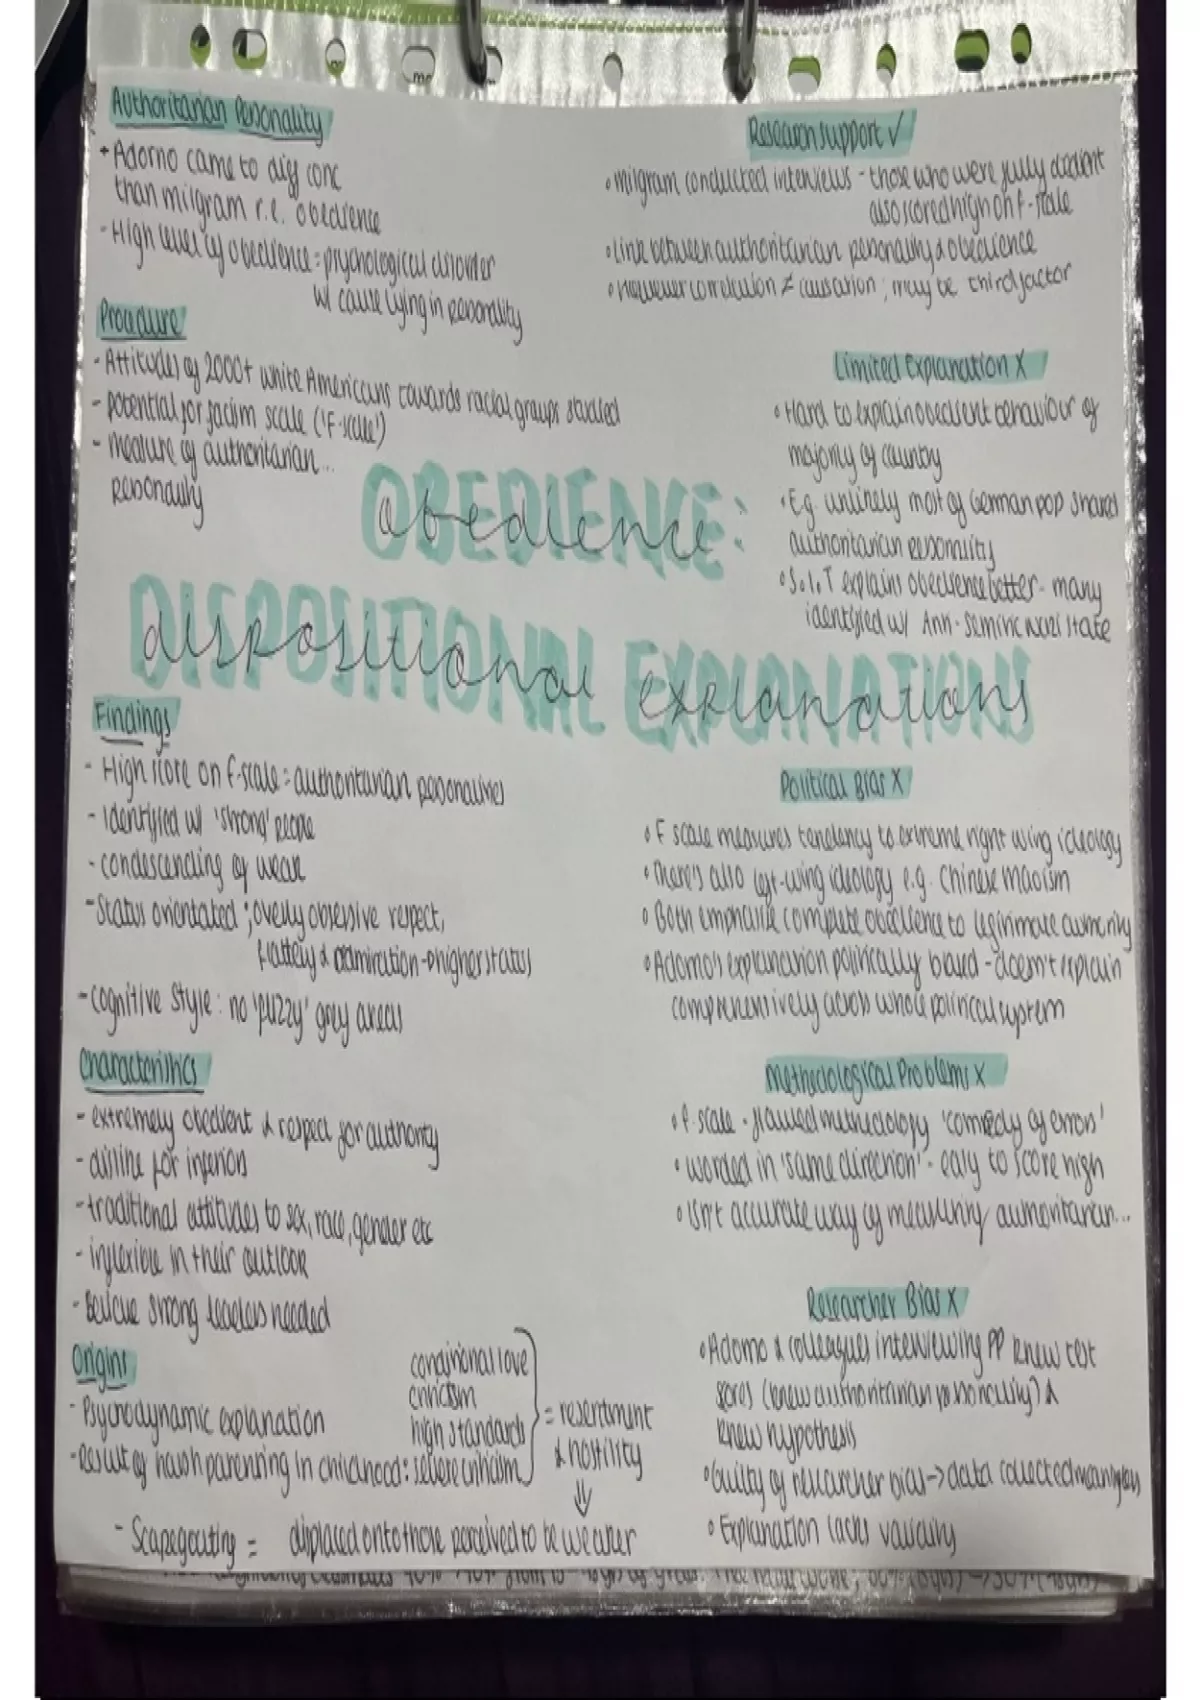 Authoritarian Personality
- Adorno came to diff conc
than milgram r.e. obedience
- High level of obedience = psychological disorder
w/ cause lying in personality
Procedure
- Attitudes of 2000+ white Americans towards racial groups studied
- potential for facism scale ('F-scale')
- measure of authoritarian...
personality
Research support ✓
• milgram conducted interviews - those who were fully obedient
also scored high on f-scale
• Link between authoritarian personality & obedience
• However correlation ≠ causation; may be third factor
Limited Explanation X
• Hard to explain obedient behaviour of
majority of country
• E.g. unlikely most of German pop shared
authoritarian personality
• S.I.T explains obedience better - many
identified w/ Ann-Semitic nazi state
OBEDIENCE:
obedience
DISPOSITIONAL EXPLANATIONS
dispositional explanations
Findings
- High score on f-scale = authoritarian personalities
- Identified w/ 'strong' people
- condescending of weak
- Status orientated; overly obsessive respect,
flattery & admiration → higher status
- cognitive style: no 'fuzzy' grey areas
Characteristics
- extremely obedient & respect for authority
- dislike for inferiors
- traditional attitudes to sex, race, gender etc
- inflexible in their outlook
- Believe strong leaders needed
Origins
- Psychodynamic explanation
- Result of harsh parenting in childhood: severe criticism
conditional love
criticism
high standards
= resentment
& hostility
⇓
- Scapegoating = displaced onto those perceived to be weaker
Political Bias X
• F scale measures tendency to extreme right wing ideology
• There's also left-wing ideology e.g. Chinese Maoism
• Both emphasise complete obedience to legitimate authority
• Adorno's explanation politically biased - doesn't explain
comprehensively across whole political system
Methodological Problems X
• f-scale - flawed methodology 'comedy of errors'
• worded in 'same direction' - easy to score high
• Isn't accurate way of measuring authoritarian...
Researcher Bias X
• Adorno & colleagues interviewing PP knew test
scores (knew authoritarian personality) &
knew hypothesis
• Guilty of researcher bias → data collected meaningless
• Explanation lacks validity